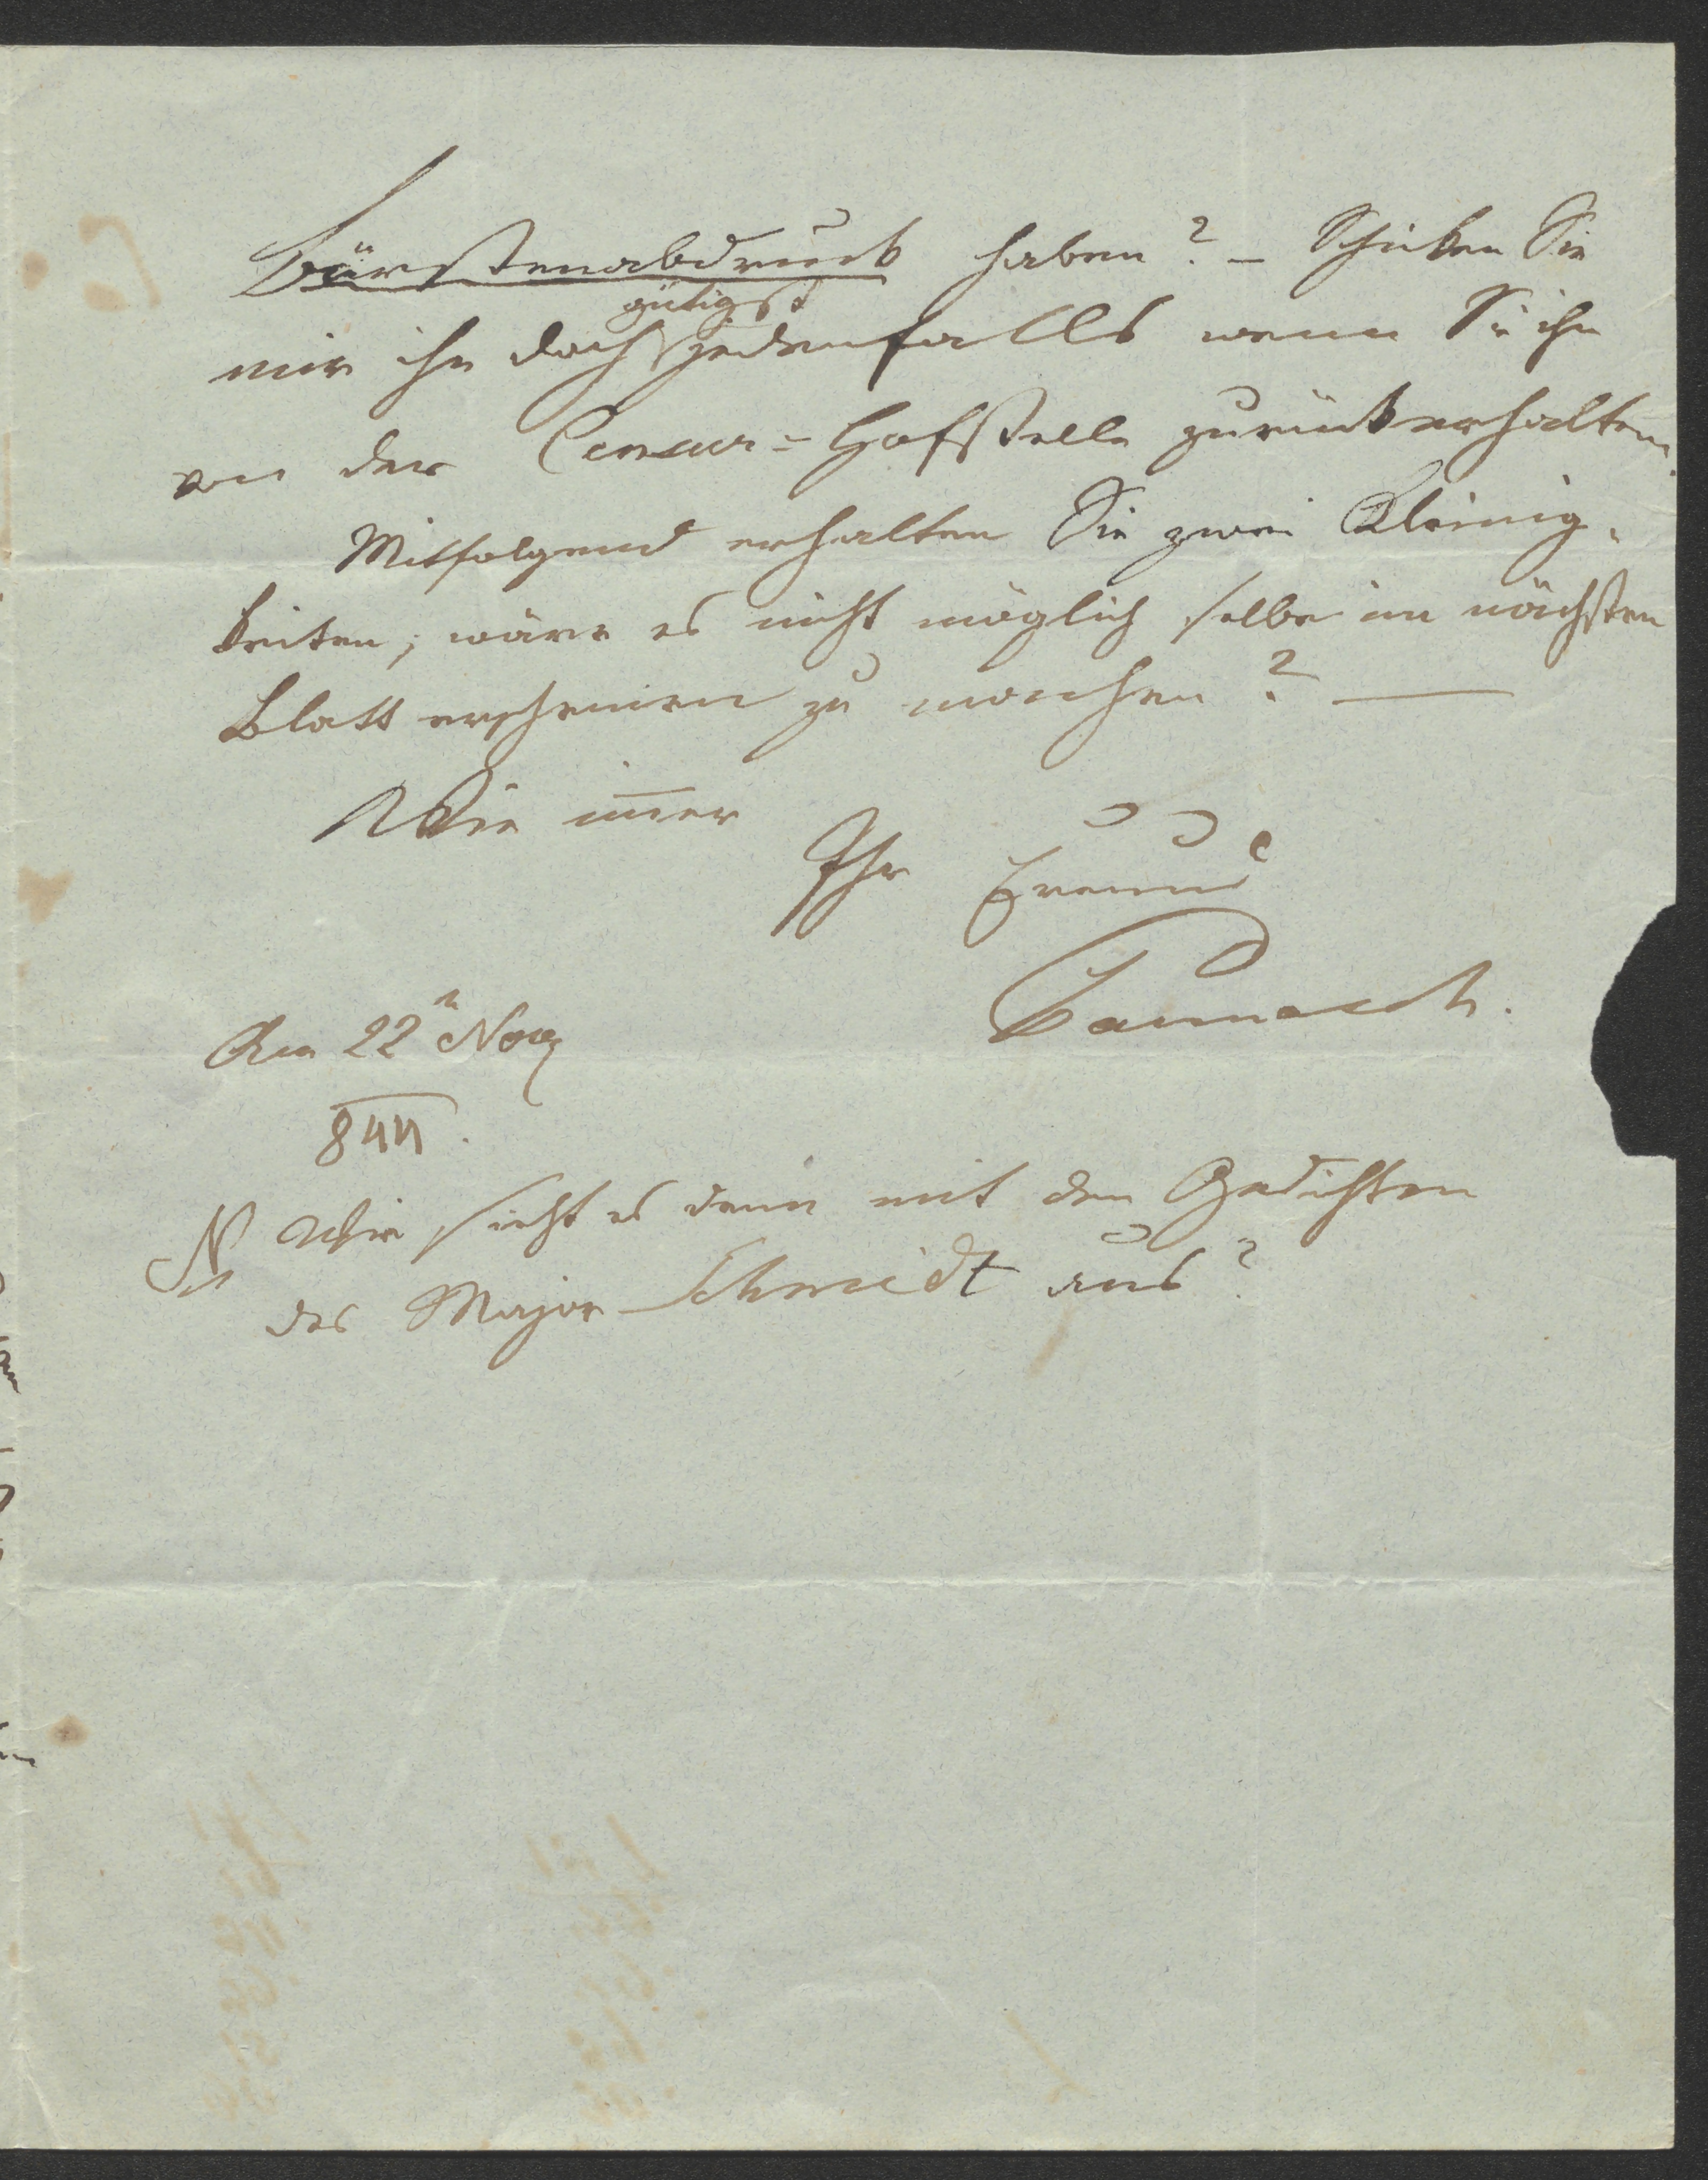 Bürstenabdruck haben? – Schicken Sie
mir ihn doch gütigst jedenfalls wenn Sie ihn
von der Censur=Hofstelle zurückerhalten.
Mitfolgend erhalten Sie zwei Kleinig-
keiten; wäre es nicht möglich selbe im nächsten
Blatt erscheinen zu machen? —
Wie im̄er
Ihr Freund
Am 22n Nov
844.
NB Wie sieht es denn mit den Gedichten
des Major Schmidt aus?